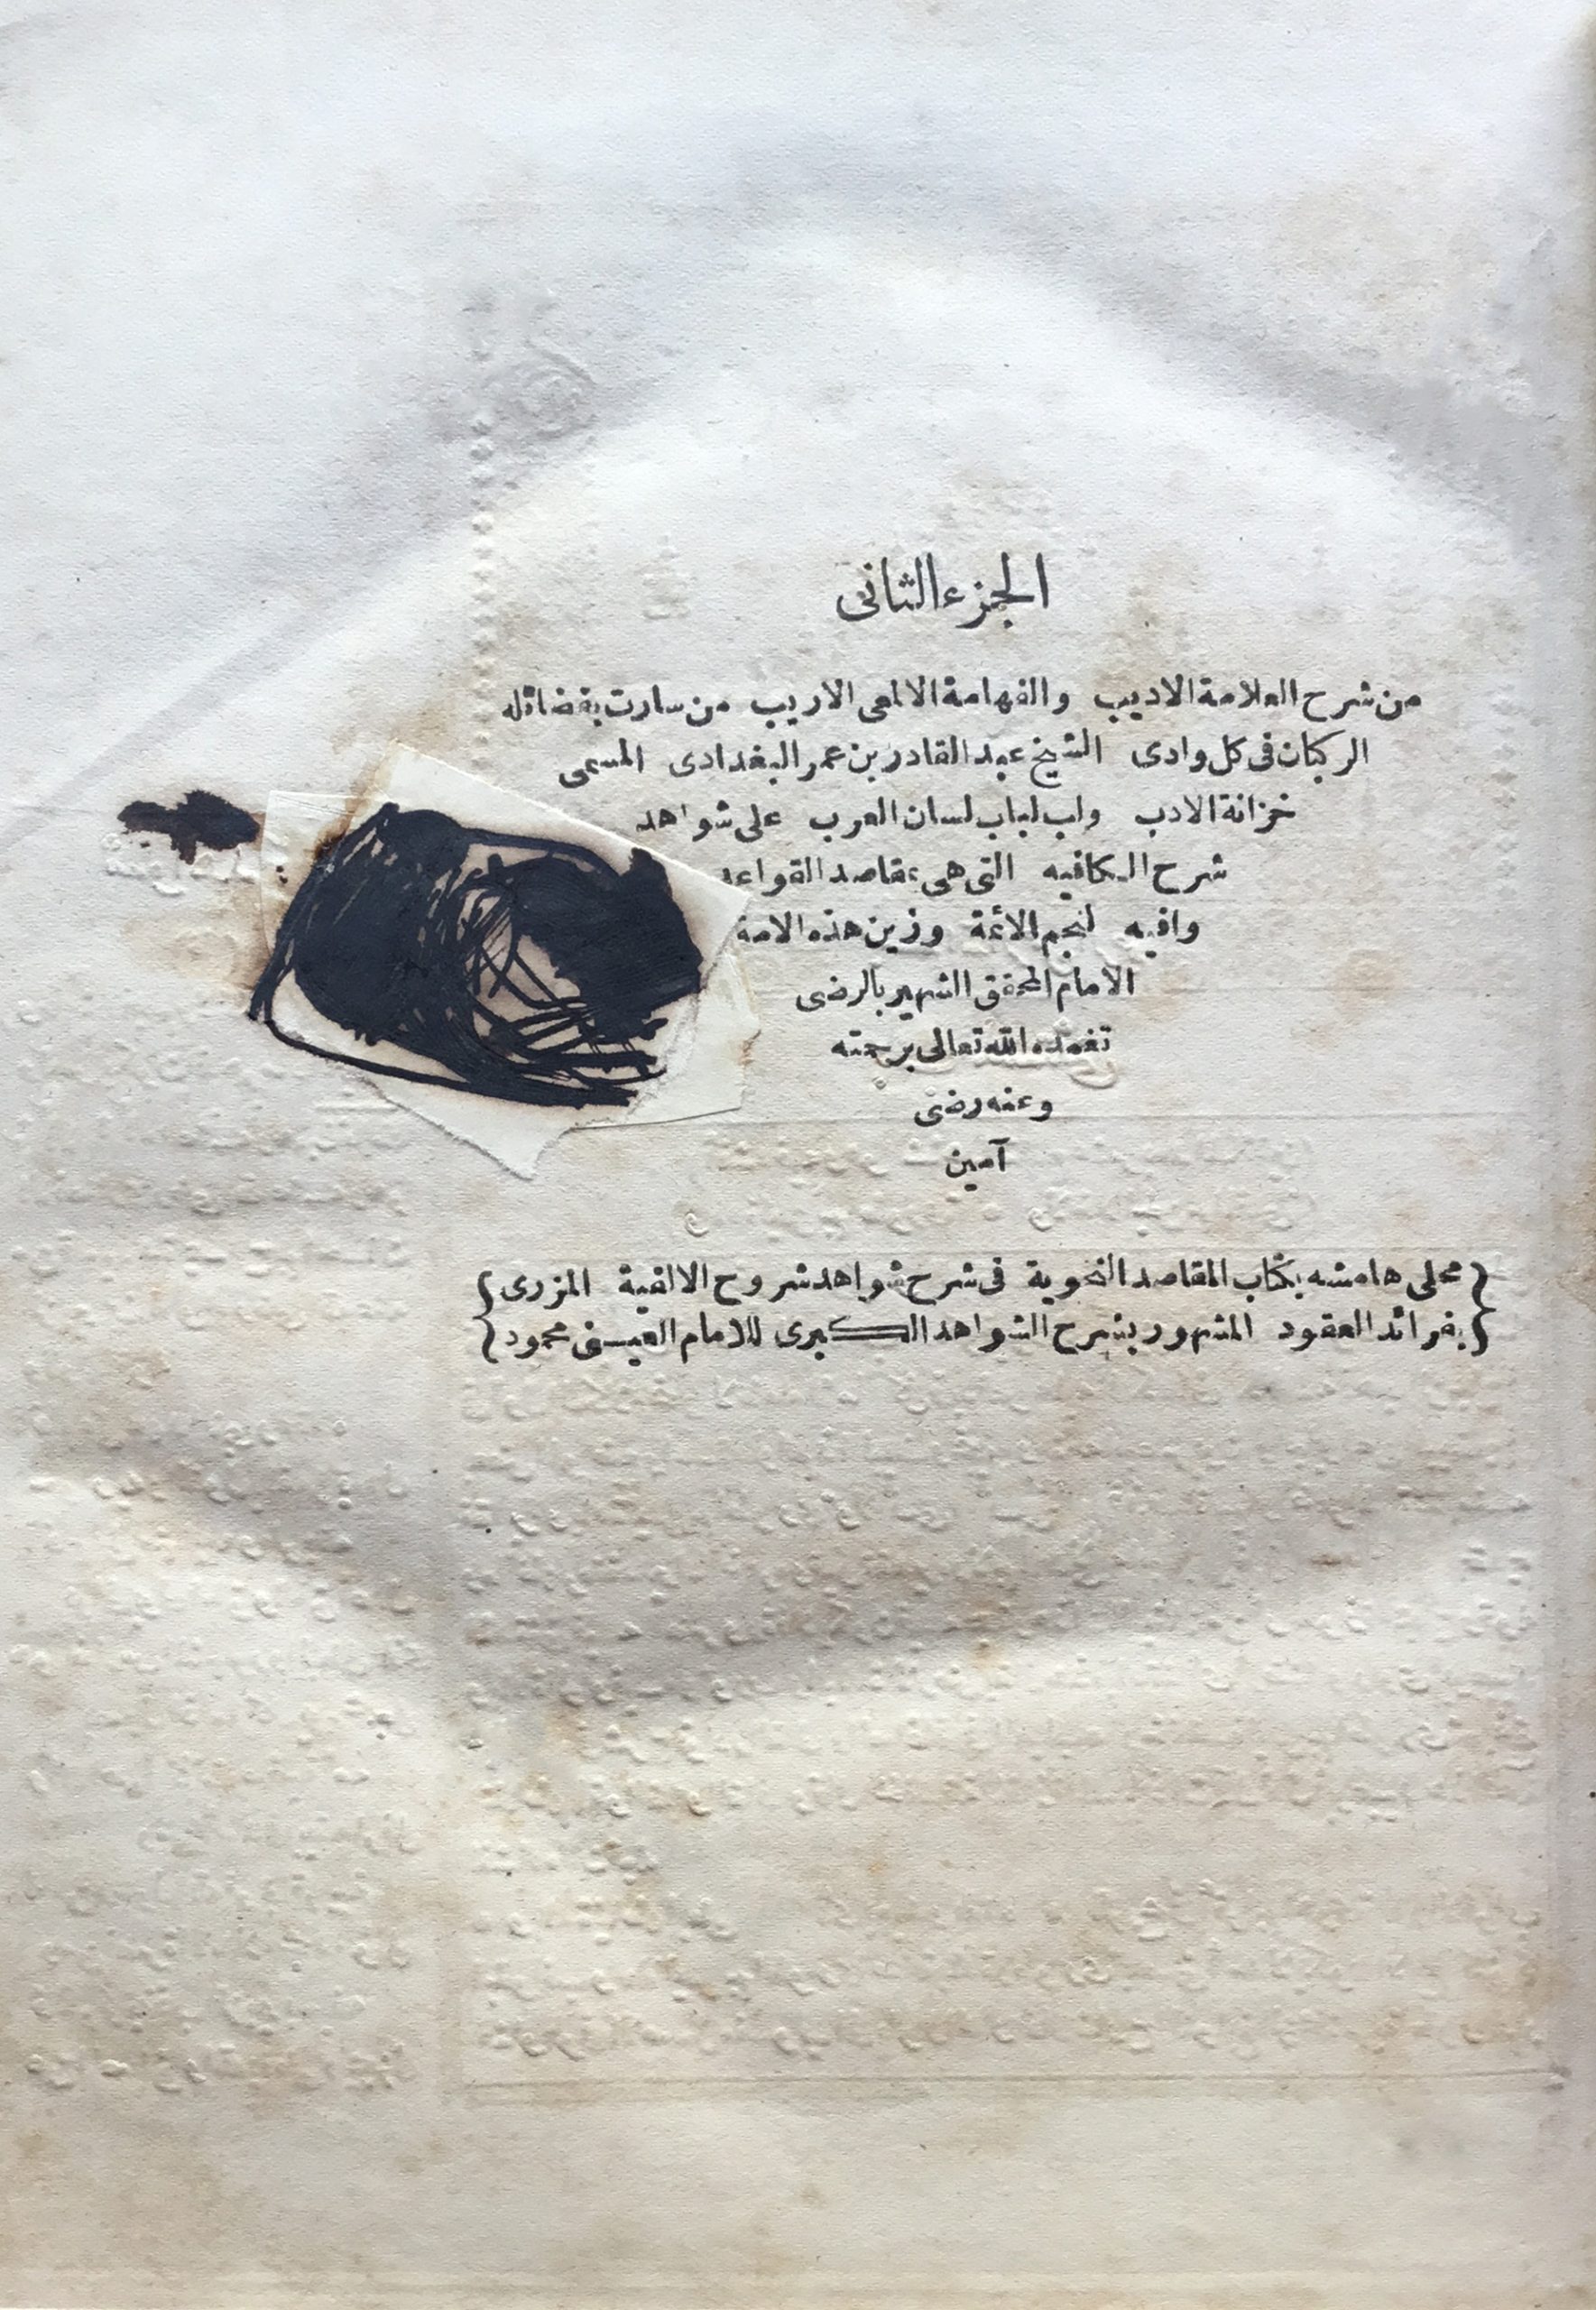 الجزء الثانى
من شرح العلامة الاديب والفهامة الالمعى الاريب من سارت بفضائله
الركبان فى كل وادى الشيخ عبد القادر بن عمر البغدادى المسمى
خزانة الادب ولب لباب لسان العرب على شواهد
شرح الكافيه التى هى بمقاصد القواعد
وافيه لنجم الائمة وزين هذه الامة
الامام المحقق الشهير بالرضى
تغمده الله تعالى برحمته
وعنه رضى
آمين
{محلى هامشه بكتاب المقاصد النحوية فى شرح شواهد شروح الالفية المزرى}
{بفرائد العقود المشهور بشرح الشواهد الكبرى للامام العينى محمود}